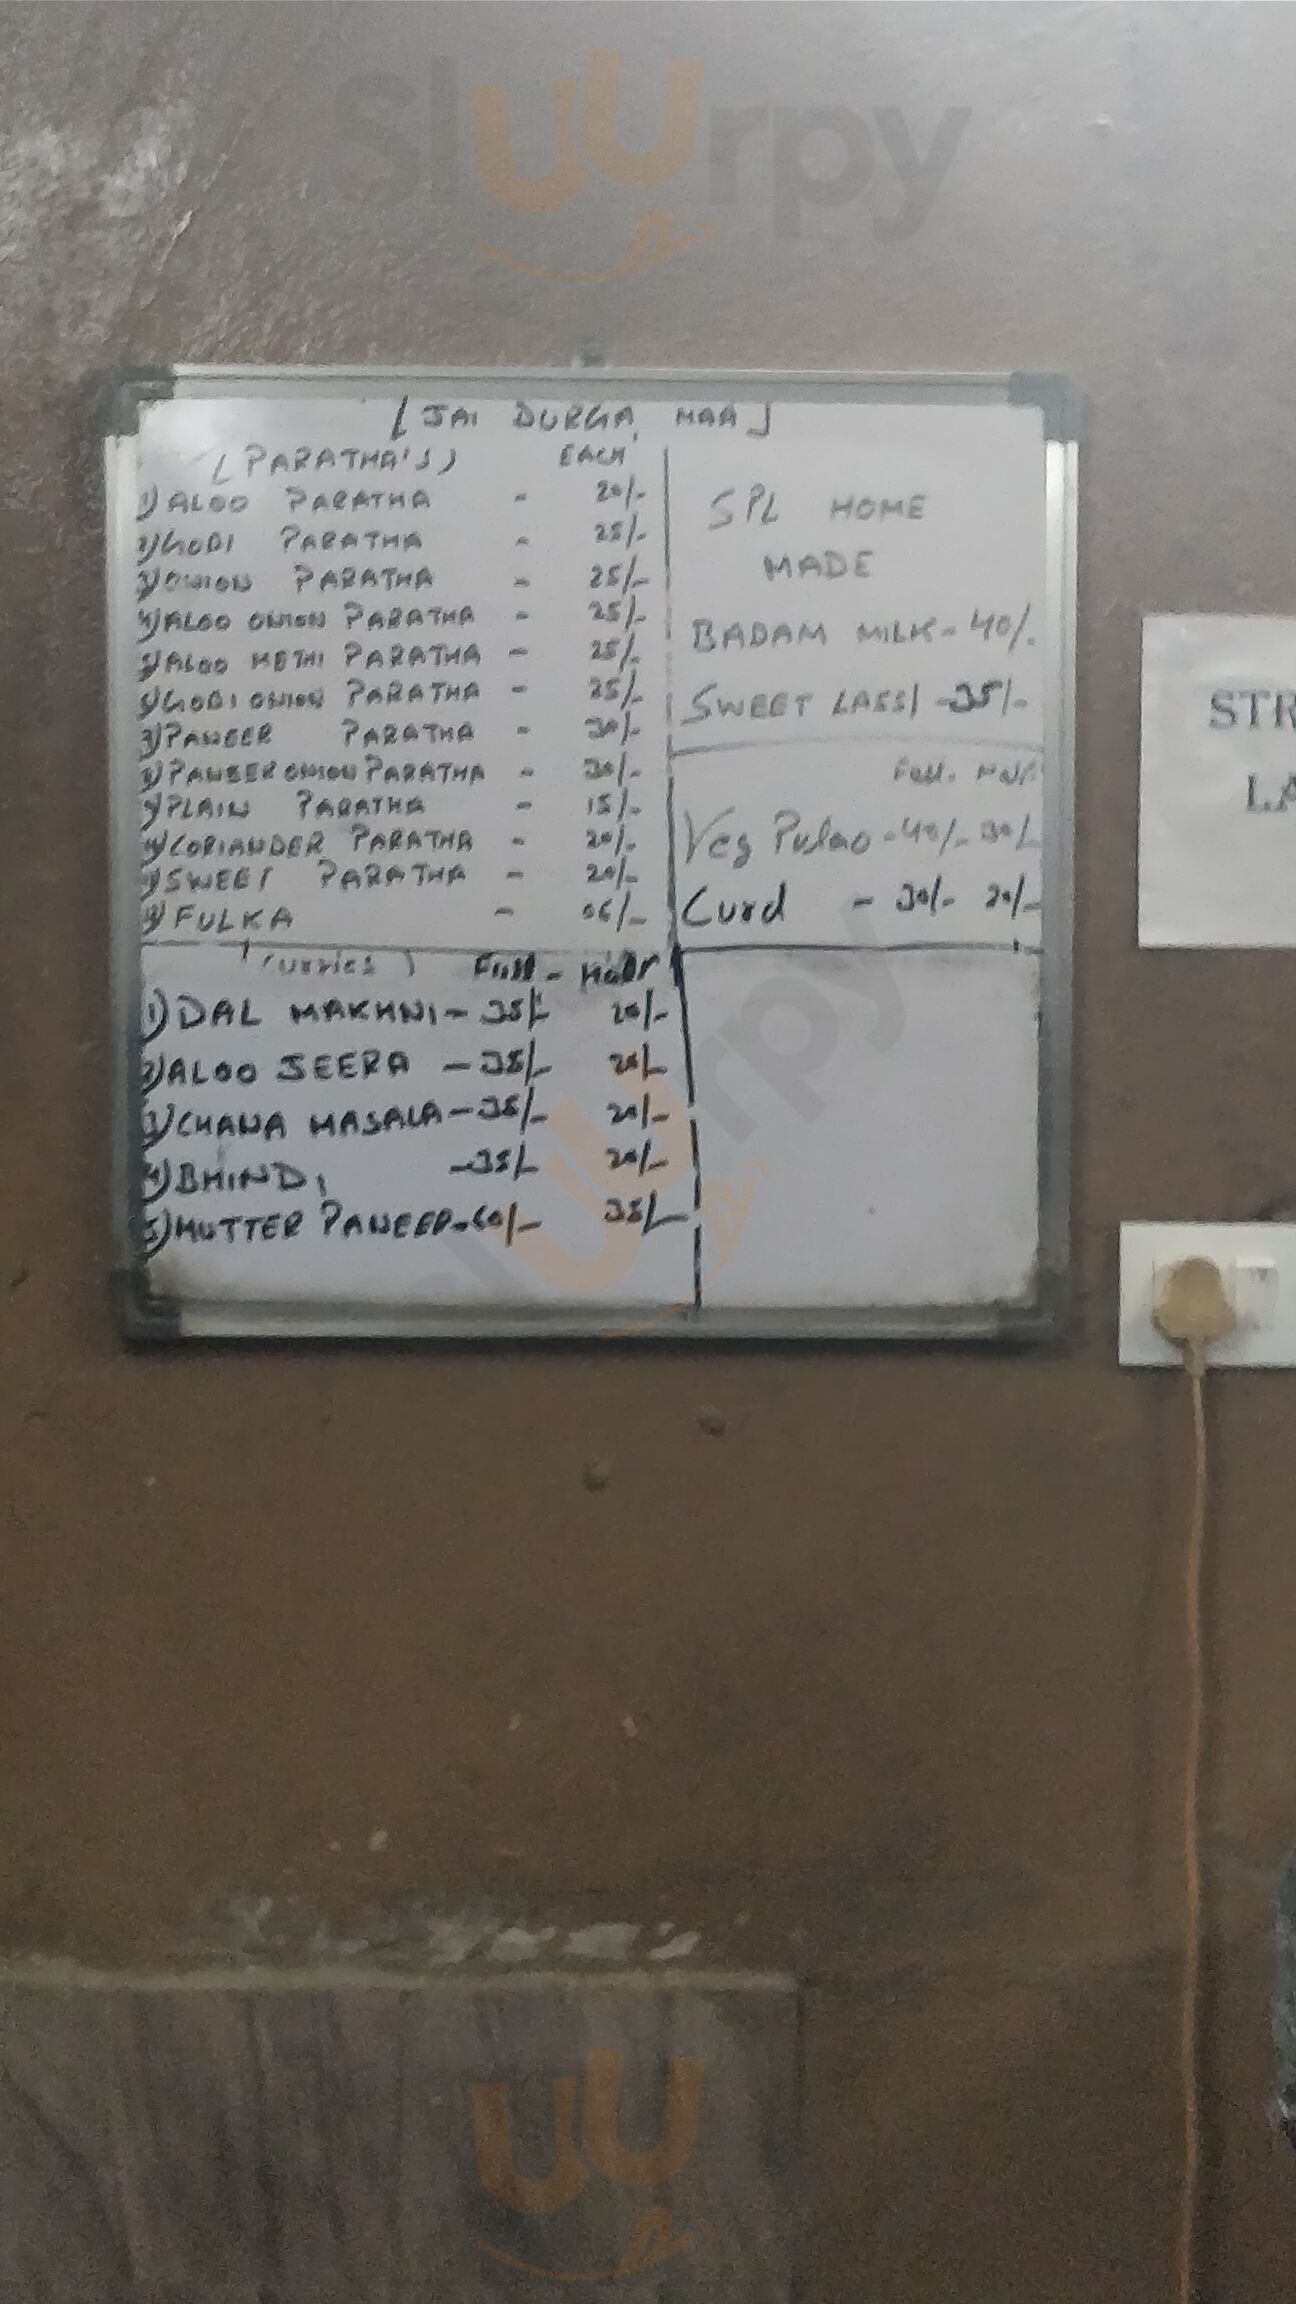 Sluurpy
[JAI DURGA MAA]
(PARATHA'S) EACH
1) ALOO PARATHA - 20/-
2) GOBI PARATHA - 25/-
3) ONION PARATHA - 25/-
4) ALOO ONION PARATHA - 25/-
5) ALOO METHI PARATHA - 25/-
6) GOBI ONION PARATHA - 25/-
7) PANEER PARATHA - 30/-
8) PANEER ONION PARATHA - 30/-
9) PLAIN PARATHA - 15/-
10) CORIANDER PARATHA - 20/-
11) SWEET PARATHA - 20/-
12) FULKA - 06/-
(Curries) Full - Half
1) DAL MAKHNI - 35/- 20/-
2) ALOO JEERA - 35/- 20/-
3) CHANA MASALA - 35/- 20/-
4) BHINDI - 35/- 20/-
5) MUTTER PANEER - 60/- 35/-
SPL HOME
MADE
BADAM MILK - 40/-
SWEET LASSI - 35/-
Full. Half
Veg Pulao - 40/- 30/-
Curd - 30/- 20/-
STR
LA
Sluurpy